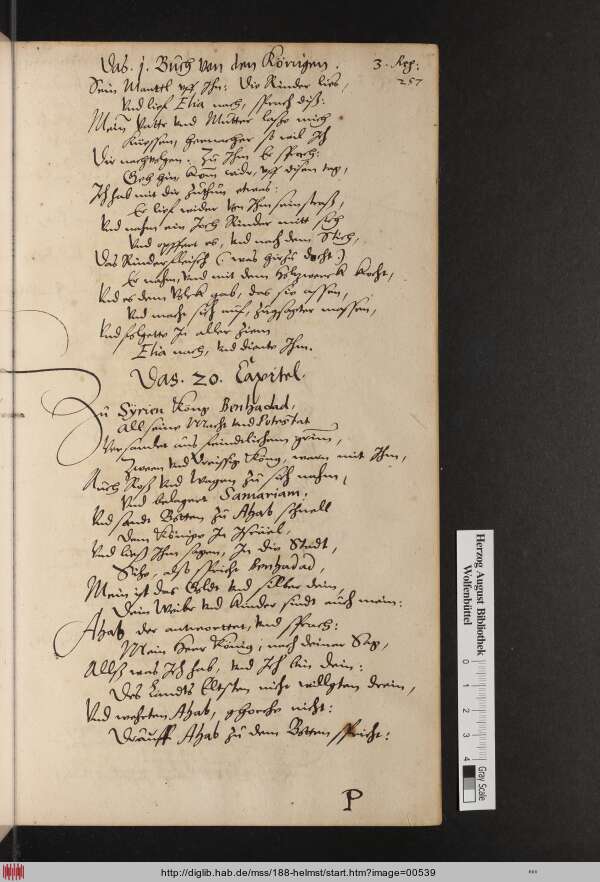 Das. j. Buch von den Königen.
3. Reg:
257
Sein Manttl vff Ihn: Die Rinder lies,
Vnd lieff Elia nach, sprach diß:
Mein Vatter vnd Mutter laße mich
Küessen, hernacher so wil Ich
Dir nachuolgen. Zu Ihm Er sprach:
Geh hin, komm wider, vff disen tag,
Ich hab mit dir zuthun etwas:
Er lieff wider von Ihm sein straß,
Vnd nahm ein Joch Rinder mitt sich
Vnd opffert es, vnd nach dem Stich,
Das Rinderfleisch (was hiezu docht:)
Er nahm, vnd mit dem Holzwerck kocht,
Vnd es dem Volck gab, das sie assen,
Vnd macht sich auf, zugsagter massen,
Vnd folgette In aller
Elia nach, vnd diente Ihm.
Das. 20. Capitel.
Zu Syrien König Benhadad,
All seine Macht vnd Potestat
Versamlet aus feindtlichem grimm,
Zween vnd dreissig König, warn mit Ihm,
Auch Roß vnd Wagen zu sich nahm,
Vnd belegert Samariam:
Vnd sandt Botten zu Ahab schnell
Dem Könige In Israel,
Vnd ließ Ihm sagen, In die Stadt,
Sihe, also spricht Benhadad,
Mein ist das Goldt vnd silber dein,
Dein Weiber vnd Kinder sindt auch mein:
Ahab der antworttet, vnd sprach:
Mein Herr König, nach deiner Sag,
Alls was Ich hab, vnd Ich bin dein:
Des Landts Eltsten nicht willgten drein,
Vnd wehrten Ahab, ghorche nicht:
Darauff Ahab zu dem Botten spricht:
P
Herzog August Bibliothek
Wolfenbüttel
0 1 2 3 4
Gray Scale
http://diglib.hab.de/mss/188-helmst/start.htm?image=00539